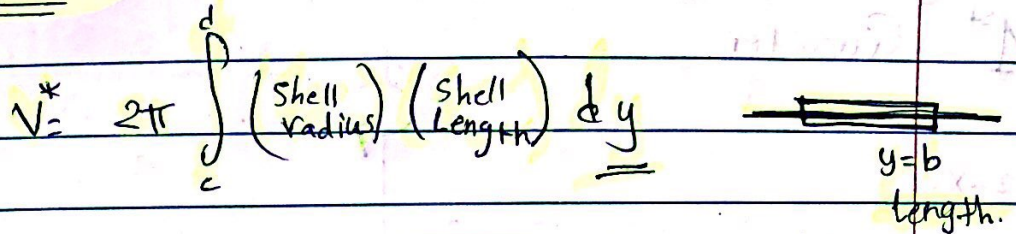 V* = 2π ∫_c^d (Shell radius) (Shell Length) dy
y=b
length.